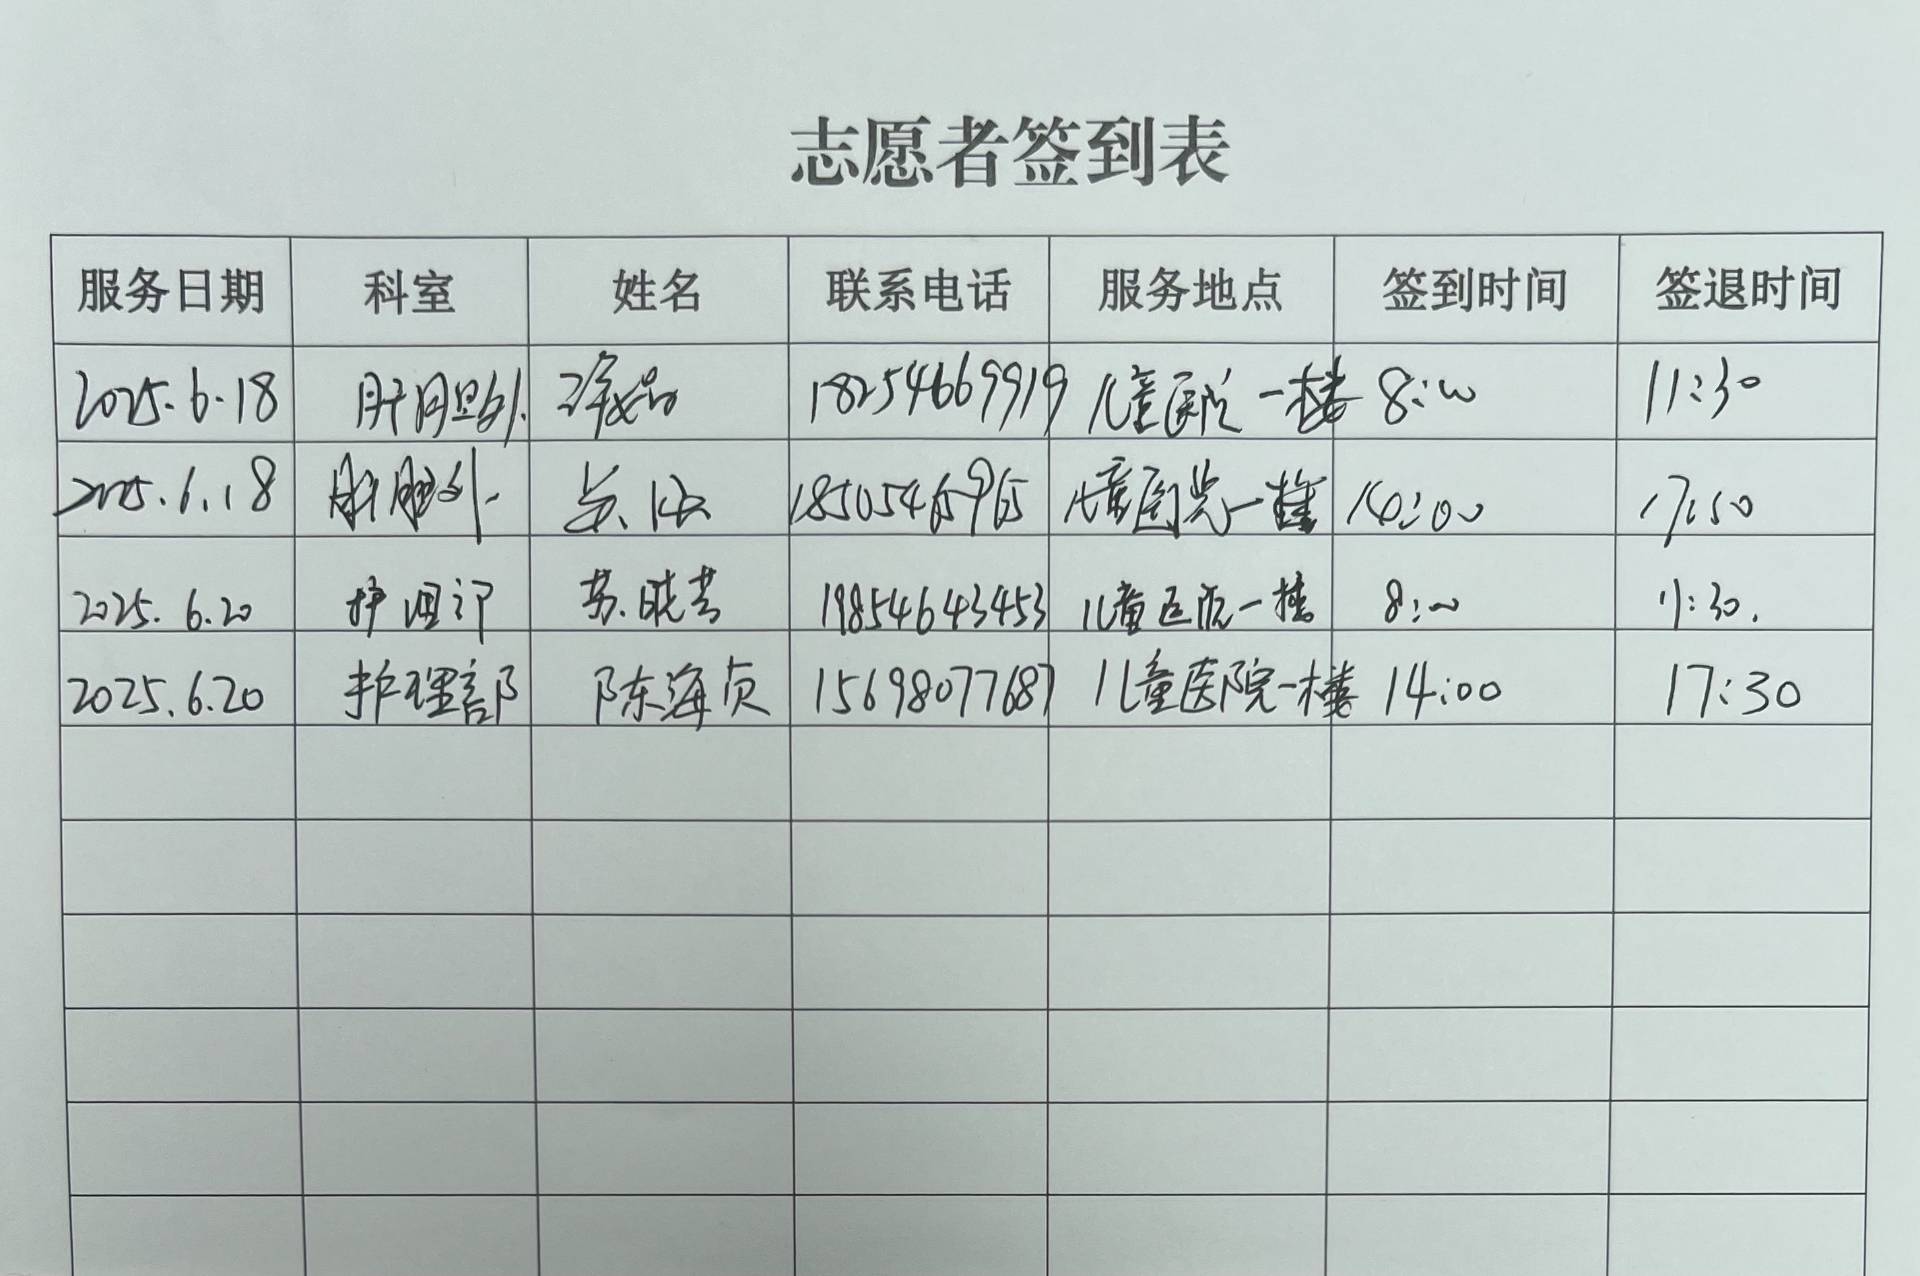 志愿者签到表
服务日期 科室 姓名 联系电话 服务地点 签到时间 签退时间
2025.6.18 肝胆外 18254669919 儿童医院一楼 8:00 11:30
2025.6.18 肝胆外 儿童医院一楼 14:00
2025.6.20 护理部 苏晓芸 19854643453 儿童医院一楼 8:00 11:30.
2025.6.20 护理部 陈海贞 15698077687 儿童医院一楼 14:00 17:30